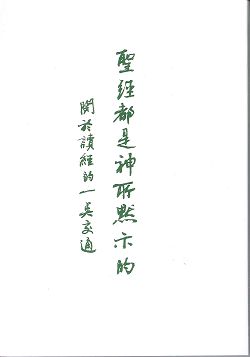 聖經都是神所默示的
關於讀經的一點交通